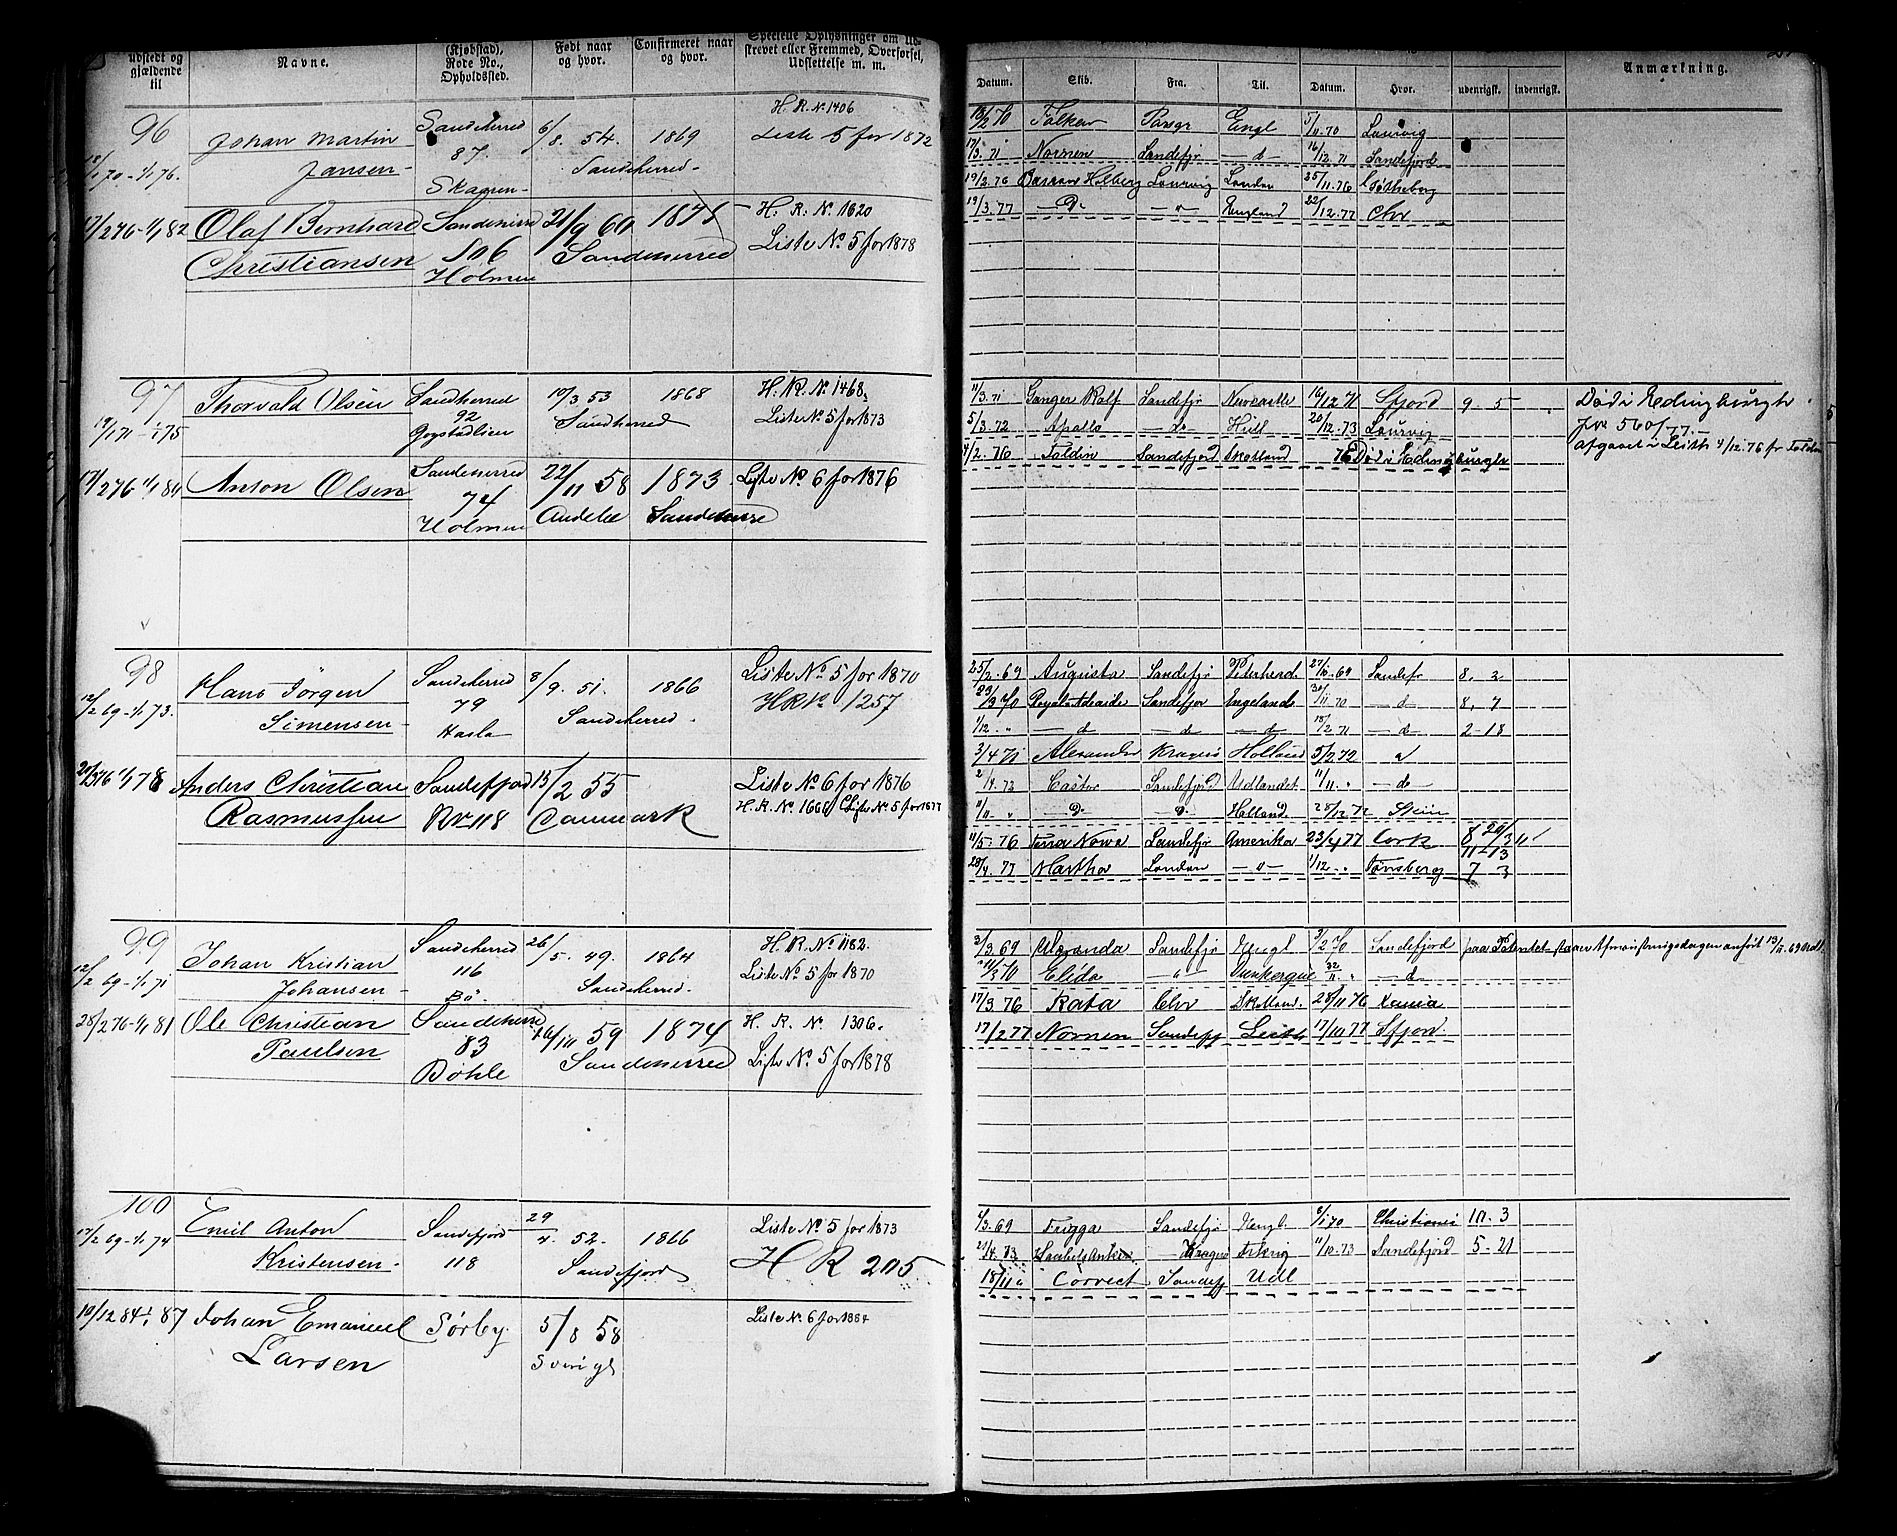 udstedt og
gjældende
til
Navne.
(Kjøbstad),
Rode No.,
Opholdssted.
Født naar
og hvor.
Confirmeret naar
og hvor.
Specielle Oplysninger om Ud-
skrevet eller Fremmed, Overførsel,
Udslettelse m. m.
96
1/1 76.
Johan Martin
Jansen
Sandeherred
87.
Skagen
6/8. 54.
1869
Sandeherred
H. R. No 1406
Liste 5 for 1872
17/2 76 - 1/1 82
Olaf Bernhard
Christiansen
Sandeherred
106
Holmen
21/9 60
1875
Sandeherred
H. R. No. 1620
Liste No. 5 for 1878
97
19/1 71 - 1/1 75
Thorvald Olsen
Sandherred
92
Gogstadlien
10/3 53
1868
Sandherred
H. R. No. 1468.
Liste No. 5 for 1873
17/2 76 1/1 80
Anton Olsen
Sandeherred
74
Holmen
22/11 58
1873
Sandeherre
Liste No. 6 for 1876
98
12/2 69 - 1/1 73.
Hans Jørgen
Simensen
Sandeherred
79
Hasle
8/9. 51.
1866
Sandeherred.
Liste No. 5 for 1870
H R No 1257
1/1 78
Anders Christian
Rasmussen
Sandefjord
No 118
13/2 55
Danmark
Liste No. 6 for 1876
H. R. No. 1666 Liste No. 5 for 1877
99
12/2 69 - 1/1 71
Johan Kristian
Johansen
Sandeherred
116
Bø.
26/5. 49.
1864
Sandeherred.
H. R. No. 1182.
Liste No. 5 for 1870
28/2 76 - 1/1 81
Ole Christian
Paulsen
Sandeherred
83
Bøhle
16/10 59
1874
Sandeherred
H. R. No. 1306.
Liste No. 5 for 1878
100
17/2 69 - 1/1 74
Emil Anton
Kristensen
Sandefjord
118
29/4. 52.
1866
Sandefjord
Liste No. 5 for 1873
H R 205
10/12 84 1/1 87
Johan Emanuel
Larsen
Sørby.
5/8 58
Liste No. 6 for 1884
Datum. Skib. Fra. Til. Datum. Hvor. udenrigsk. indenrigsk. Anmærkning.
18/2 70 Falken Porsgr Engl 5/11 70 Laurvig
17/3. 71 Nornen Sandefjr — d 16/12. 71 Sandefjord
19/2. 76 Holberg Laurvig London 25/11. 76
19/3. 77 — D — " England 22/12. 77 Chr
11/3. 71 Ganger Ralf Sandefjr Newcastle 16/12 71 Sfjord 9 - 5 Død i Edingburgh
5/3. 72 Apollo — D Hull 20/12. 73 Laurvig Jr 560/77
Foldin Sandefjord Skotland 76 Død i Edingburgh afgaaet i Leith 4/12. 76 fr Foldin
25/2. 69 Augusta Sandefjr Peterherd 69 Sandefr 8. 2
70 Royal Adelaide Sandefjor Engeland 30/11. 70 — d 8. 7
1/12. " — d — d — d 18/2 71 — d 2 - 18
3/4 71 Alexander Kragerø Holland 5/2 72 d
2/4. 72 Castor Sandefjord Udlandet 11/11. " — d
" — D — D Holland 28/12 72 Skien
11/5. 76 Terra Nowa Sandefjr Amerika 23/4 77 Cork
28/4. 77 Martha London — " 1/12. " Tønsberg 7 3
2/3. 69 Sandefjr Engl 3/2 70 Sandefjord
Elida — " Dunkerque — d
17/3. 76 Rata Chr Skotland. 28/11 76 Xania
17/2 77 Nornen Sandefj Leith 17/10 77 Sfjord.
69 Frigga Sandefjr Engl. 70 Christiania 10. 3
21/4. 73 Kragerø 11/10. 73 Sandefjord 5 - 21
Correct Sandefj Udl